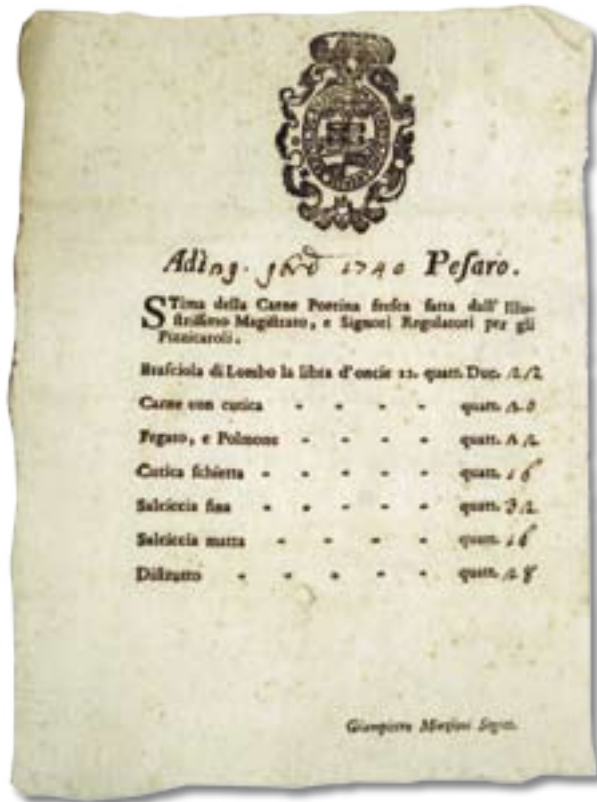 Adì 1740 Pesaro.
STima della Carne Porcina fresca fatta dall' Illu-
strissimo Magistrato, e Signori Regolatori per gli
Pizzicaroli.
Brasciola di Lombo la libra d'oncie 12. quatt. Duc.
Carne con cutica - - - - quatt.
Fegato, e Polmone - - - - quatt.
Cutica schietta - - - - - quatt. 16
Salciccia fina - - - - - quatt. 32
Salciccia matta - - - - - quatt. 16
Dilizutto - - - - - quatt. 28
Giampietro Segret.